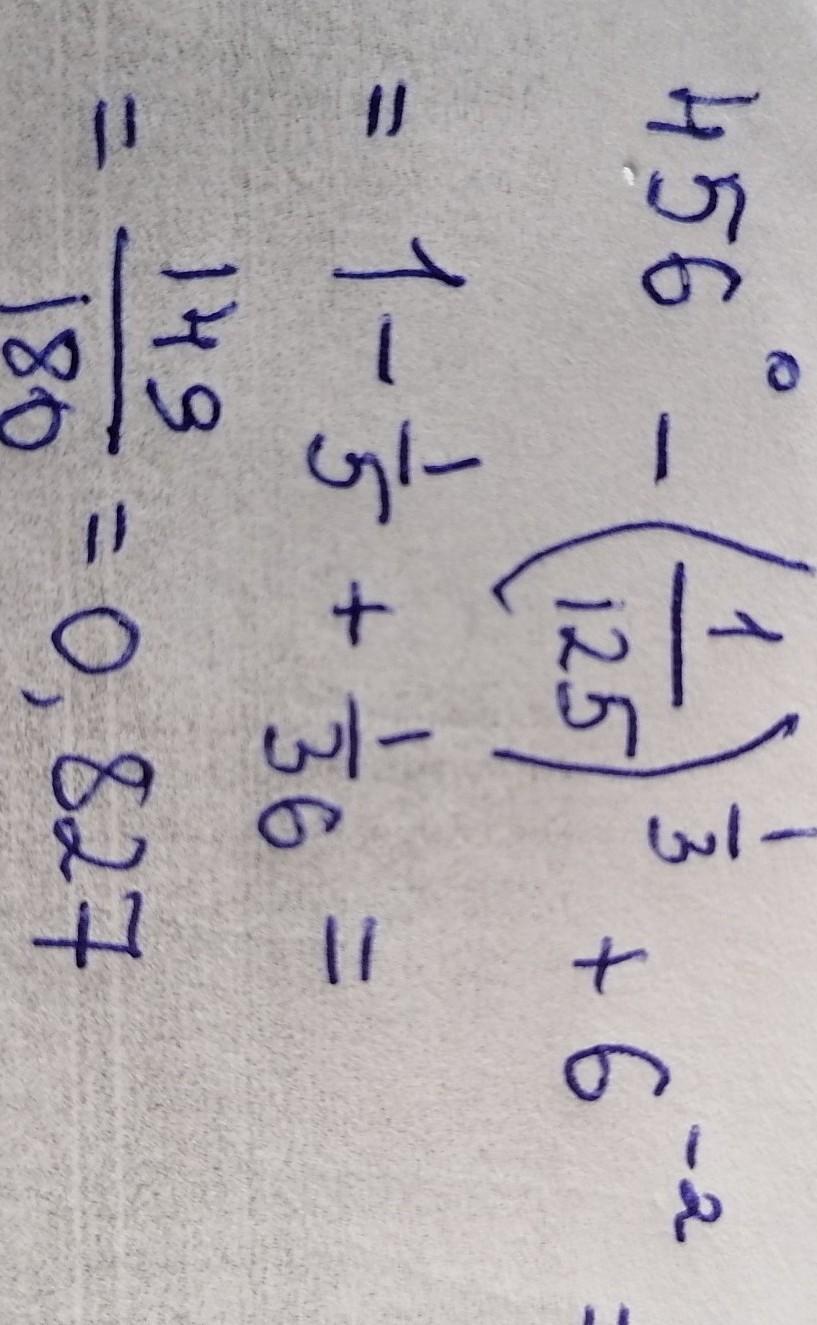 456⁰ - (1/125)^(1/3) + 6⁻² =
= 1 - 1/5 + 1/36 =
= 149/180 = 0,827